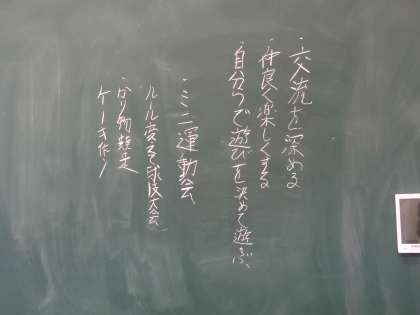 ・交流を深める
・仲良く楽しくする
・自分たちで遊びを決めて遊ぶ。
・ミニ運動会
ルール変えて球技大会
・かり物競走
ケーキ作り